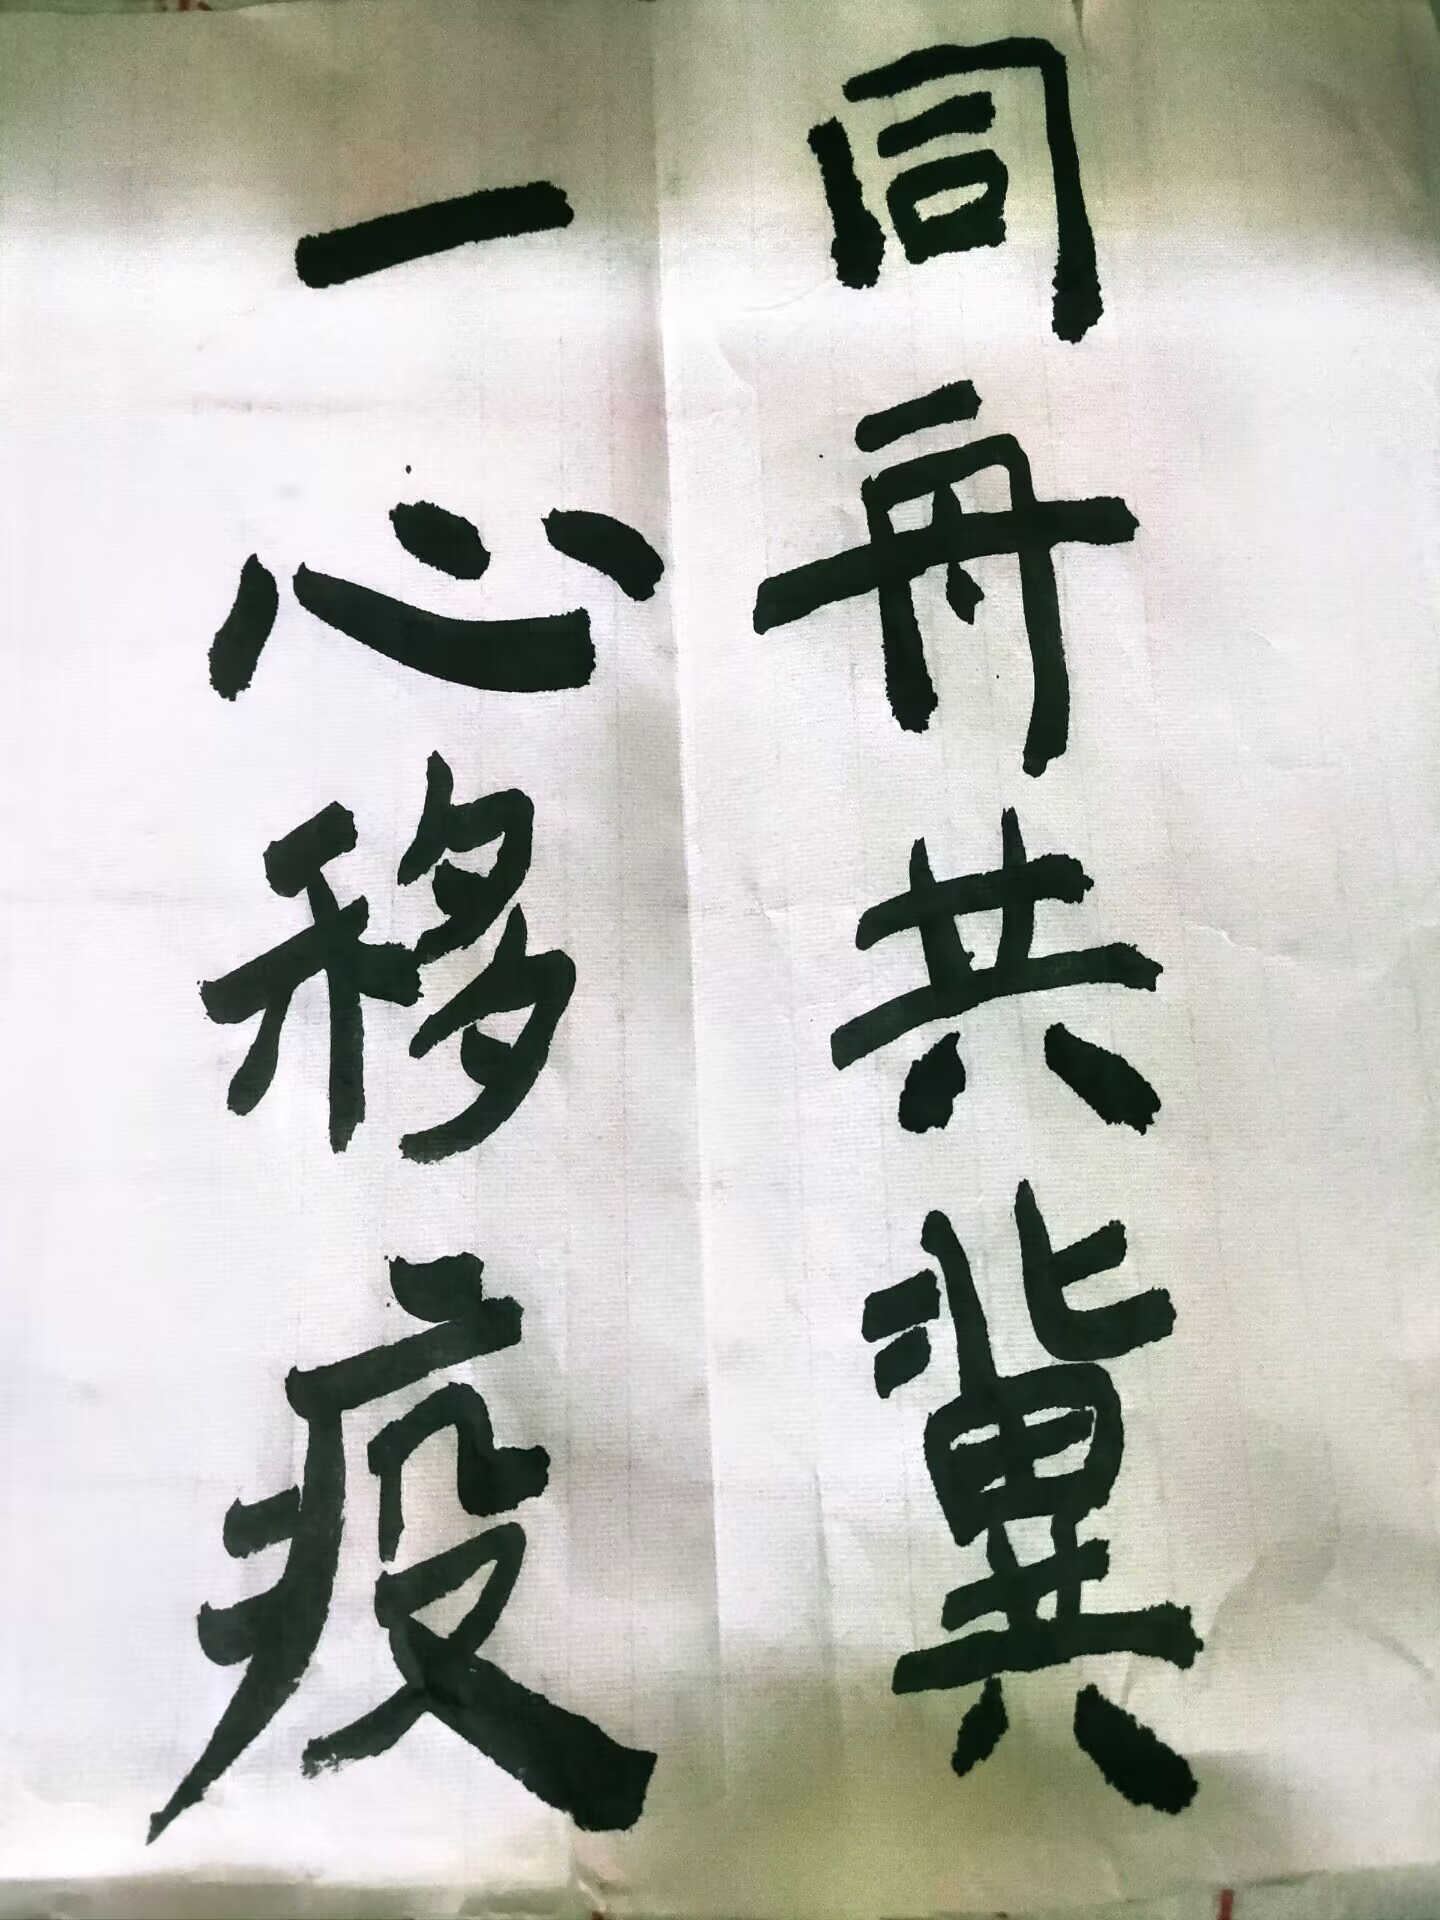 同舟共冀
一心移疫